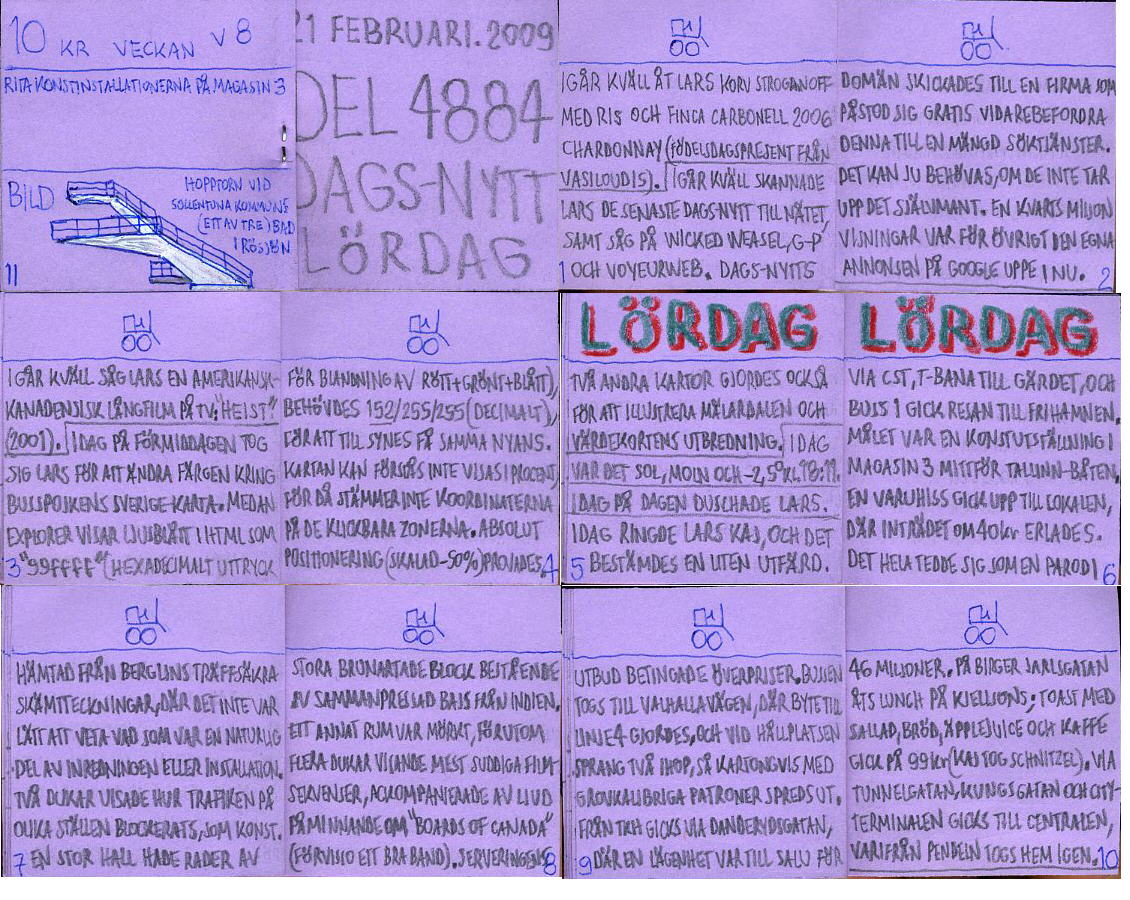 10 KR VECKAN V 8
RITA KONSTINSTALLATIONERNA PÅ MAGASIN 3
BILD
HOPPTORN VID
SOLLENTUNA KOMMUNS
(ETT AV TRE) BAD
I RÖSJÖN
11
21 FEBRUARI. 2009
DEL 4884
DAGS-NYTT
LÖRDAG
IGÅR KVÄLL ÅT LARS KORV STROGANOFF
MED RIS OCH FINCA CARBONELL 2006
CHARDONNAY (FÖDELSDAGSPRESENT FRÅN
VASILOUDIS). IGÅR KVÄLL SKANNADE
LARS DE SENASTE DAGS-NYTT TILL NÄTET,
SAMT SÅG PÅ WICKED WEASEL, G-P
1 OCH VOYEURWEB. DAGS-NYTTS
DOMÄN SKICKADES TILL EN FIRMA SOM
PÅSTOD SIG GRATIS VIDAREBEFORDRA
DENNA TILL EN MÄNGD SÖKTJÄNSTER.
DET KAN JU BEHÖVAS, OM DE INTE TAR
UPP DET SJÄLVMANT. EN KVARTS MILJON
VISNINGAR VAR FÖR ÖVRIGT DEN EGNA
ANNONSEN PÅ GOOGLE UPPE I NU. 2
IGÅR KVÄLL SÅG LARS EN AMERIKANSK-
KANADENSISK LÅNGFILM PÅ TV: "HEIST"
(2001). IDAG PÅ FÖRMIDDAGEN TOG
SIG LARS FÖR ATT ÄNDRA FÄRGEN KRING
BUSSPOJKENS SVERIGE-KARTA. MEDAN
EXPLORER VISAR LJUSBLÅTT I HTML SOM
3 "99FFFF" (HEXADECIMALT UTTRYCK
FÖR BLANDNING AV RÖTT+GRÖNT+BLÅTT),
BEHÖVDES 152/255/255 (DECIMALT),
FÖR ATT TILL SYNES FÅ SAMMA NYANS.
KARTAN KAN FÖRSTÅS INTE VISAS I PROCENT,
FÖR DÅ STÄMMER INTE KOORDINATERNA
PÅ DE KLICKBARA ZONERNA. ABSOLUT
POSITIONERING (SKALAD-50%) PROVADES. 4
LÖRDAG
TVÅ ANDRA KARTOR GJORDES OCKSÅ
FÖR ATT ILLUSTRERA MÄLARDALEN OCH
VÄRDEKORTENS UTBREDNING. IDAG
VAR DET SOL, MOLN OCH -2,5° KL.
IDAG PÅ DAGEN DUSCHADE LARS.
IDAG RINGDE LARS KAJ, OCH DET
5 BESTÄMDES EN LITEN UTFÄRD.
LÖRDAG
VIA CST, T-BANA TILL GÄRDET, OCH
BUSS 1 GICK RESAN TILL FRIHAMNEN.
MÅLET VAR EN KONSTUTSTÄLLNING I
MAGASIN 3 MITTFÖR TALLINN-BÅTEN.
EN VARUHISS GICK UPP TILL LOKALEN,
DÄR INTRÄDET OM 40 kr ERLADES.
DET HELA TEDDE SIG SOM EN PARODI 6
HÄMTAD FRÅN BERGLINS TRÄFFSÄKRA
SKÄMTTECKNINGAR, DÄR DET INTE VAR
LÄTT ATT VETA VAD SOM VAR EN NATURLIG
DEL AV INREDNINGEN ELLER INSTALLATION.
TVÅ DUKAR VISADE HUR TRAFIKEN PÅ
OLIKA STÄLLEN BLOCKERATS, SOM KONST.
7 EN STOR HALL HADE RADER AV
STORA BRUNARTADE BLOCK BESTÅENDE
AV SAMMANPRESSAD BAJS FRÅN INDIEN.
ETT ANNAT RUM VAR MÖRKT, FÖRUTOM
FLERA DUKAR VISANDE MEST SUDDIGA FILM-
SEKVENSER, ACKOMPANIERADE AV LJUD
PÅMINNANDE OM "BOARDS OF CANADA"
(FÖRVISSO ETT BRA BAND). SERVERINGENS 8
UTBUD BETINGADE ÖVERPRISER. BUSSEN
TOGS TILL VALHALLAVÄGEN, DÄR BYTE TILL
LINJE 4 GJORDES, OCH VID HÅLLPLATSEN
SPRANG TVÅ IHOP, SÅ KARTONGVIS MED
GROVKALIBRIGA PATRONER SPREDS UT.
FRÅN TKH GICKS VIA DANDERYDSGATAN,
9 DÄR EN LÄGENHET VAR TILL SALU FÖR
46 MILJONER. PÅ BIRGER JARLSGATAN
ÅTS LUNCH PÅ KJELLSONS; TOAST MED
SALLAD, BRÖD, ÄPPLEJUICE OCH KAFFE
GICK PÅ 99 kr (KAJ TOG SCHNITZEL). VIA
TUNNELGATAN, KUNGSGATAN OCH CITY-
TERMINALEN GICKS TILL CENTRALEN,
VARIFRÅN PENDELN TOGS HEM IGEN. 10